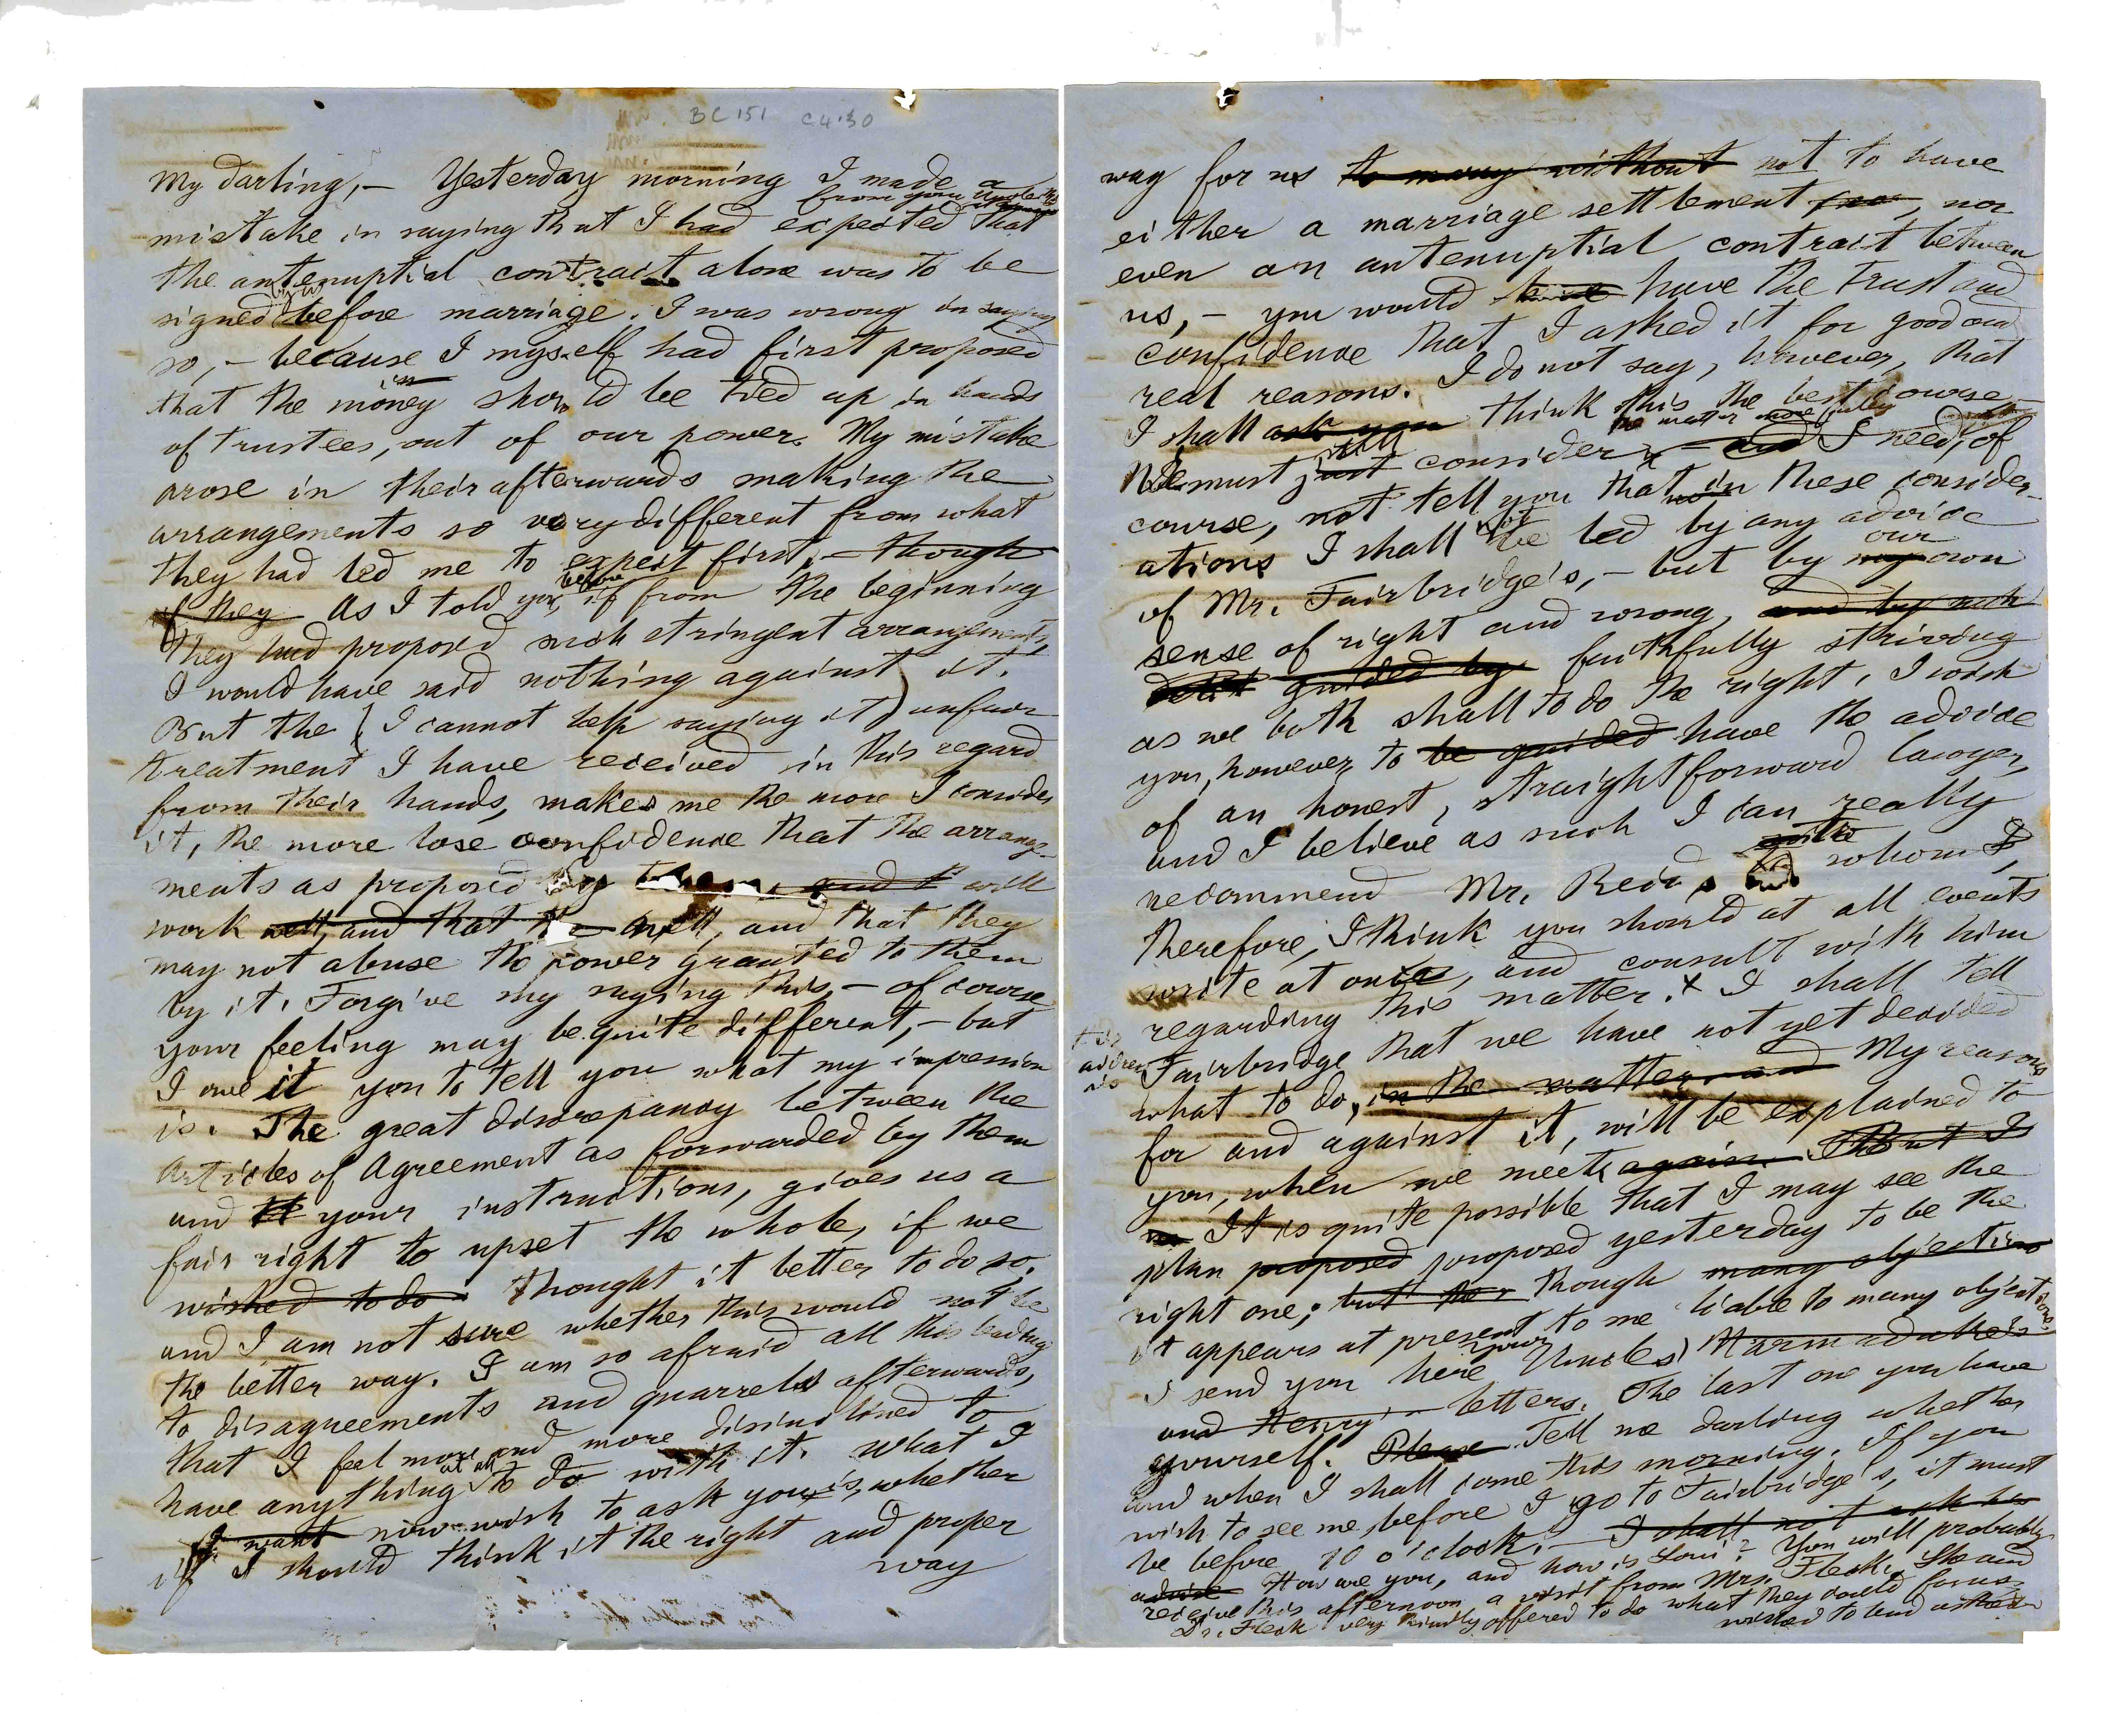 BC 151 C4.30
My darling, – Yesterday morning I made a
from your
mistake in saying that I had expected that
the antenuptial contract alone was to be
by us
signed before marriage. I was wrong in saying
so, – because I myself had first proposed
that the money should be tied up in hands
of trustees, out of our power. My mistake
arose in their afterwards making the
arrangements so very different from what
they had led me to expect first, – though
if they As I told you before, if from the beginning
they had proposed such stringent arrangements,
I would have said nothing against it.
But the (I cannot help saying it) unfair
treatment I have received in this regard
from their hands, makes me the more I consider
it, the more lose confidence that the arrange-
ments as proposed by them, and I will
work well, and that the well, and that they
may not abuse the power granted to them
by it. Forgive my saying this, – of course
your feeling may be quite different, – but
I owe it you to tell you what my impression
is. The great discrepancy between the
Articles of Agreement as forwarded by them
and your instructions, gives us a
fair right to upset the whole, if we
wished to do thought it better to do so.
and I am not sure whether this would not be
the better way. I am so afraid all this leading
to disagreements and quarrels afterwards,
that I feel more and more disinclined to
have anything at all to do with it. What I
I want now wish to ask you is, whether
if I should think it the right and proper
way
way for us to marry without not to have
either a marriage settlement nor
even an antenuptial contract between
us, – you would have the trust and
confidence that I asked it for good and
real reasons. I do not say, however, that
I shall ask you think this the best course
the matter more fully
We must just still consider – and I need, of
course, not tell you that in these consider-
ations I shall not be led by any advice
of Mr. Fairbridge's, – but by my our own
sense of right and wrong, and by such
guided by faithfully striving
as we both shall to do the right. I wish
you, however, to be guided have the advice
of an honest, straightforward lawyer,
and I believe as such I can really
recommend Mr. Reid, whom I,
therefore, I think you should at all events
write at once, and consult with him
regarding this matter. x I shall tell
his
address
is
Fairbridge that we have not yet decided
what to do, in the matter and My reasons
for and against it, will be explained to
you, when we meet again. But I
It is quite possible that I may see the
plan proposed proposed yesterday to be the
right one; but the though many objections
it appears at present to me liable to many objections.
I send you here your Uncles' Marmaduke's
and Henry's letters. The last one you have
yourself. Please Tell me darling whether
and when I shall come this morning. If you
wish to see me before I go to Fairbridge's, it must
be before 10 o'clock. – I shall not ask his
advice How are you, and how is Loui? You will probably
receive this afternoon a visit from Mrs. Fleck. She and
Dr. Fleck very kindly offered to do what they could for us
wished to lend us